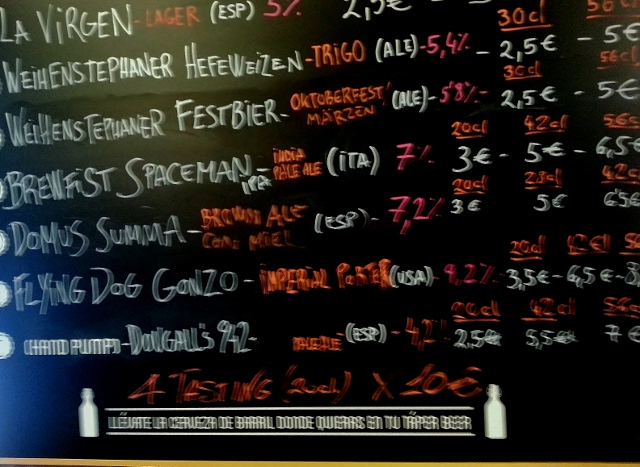 LA VIRGEN - LAGER (ESP) 5% 2,5€
30cl 50cl
WEIHENSTEPHANER HEFEWEIZEN - TRIGO (ALE) - 5,4% - 2,5€ - 5€
30cl 50cl
WEIHENSTEPHANER FESTBIER - OKTOBERFEST/ MÄRZEN (ALE) - 5'8% - 2,5€ - 5€
20cl 42cl
BREWFIST SPACEMAN IPA - INDIA PALE ALE (ITA) 7% 3€ - 5€ - 6,5€
20cl
DOMUS SUMMA - BROWN ALE CON MIEL (ESP) - 7,2% 3€ 5€
20cl
FLYING DOG GONZO - IMPERIAL PORTER (USA) 9,2% 3,5€ - 6,5€ - 8
42cl
(HAND PUMP) - DOUGALL'S 942 - PALE ALE (ESP) - 4,2% 2,5€ 5,5€ 7€
4 TASTING (20cl) X 10€
LLÉVATE LA CERVEZA DE BARRIL DONDE QUIERAS EN TU TÁPER BEER